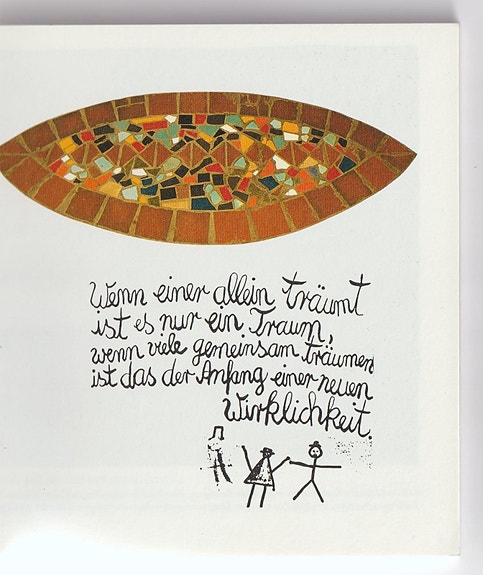 Wenn einer allein träumt
ist es nur ein Traum,
wenn viele gemeinsam träumen
ist das der Anfang einer neuen
Wirklichkeit.